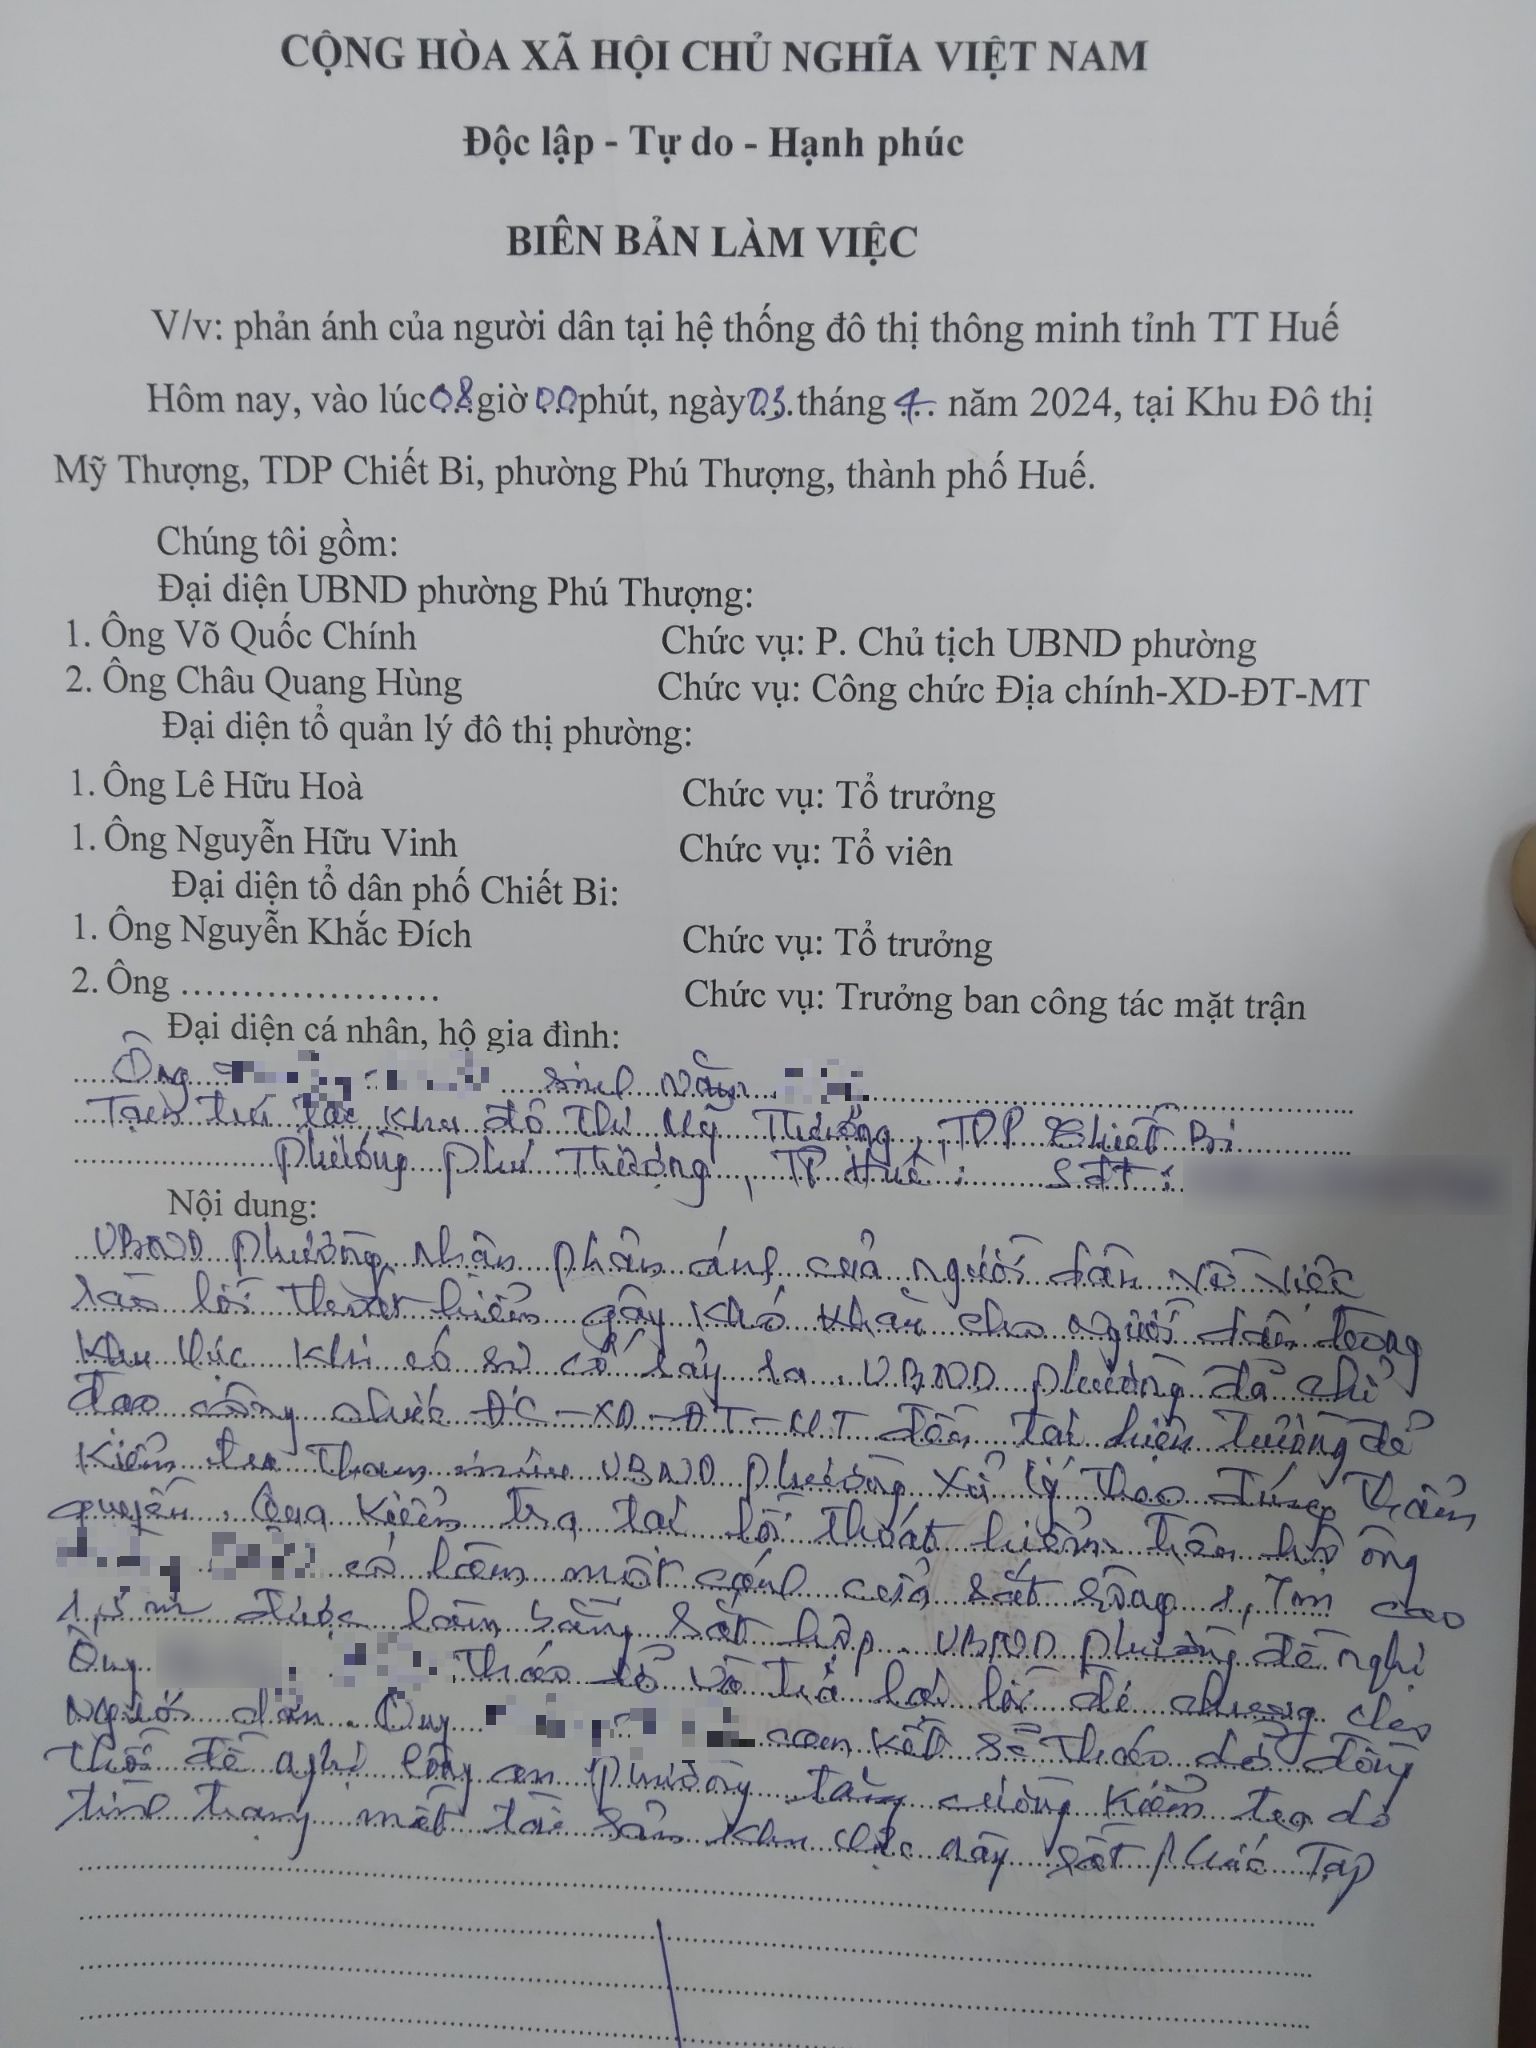 CỘNG HÒA XÃ HỘI CHỦ NGHĨA VIỆT NAM
Độc lập - Tự do - Hạnh phúc
BIÊN BẢN LÀM VIỆC
V/v: phản ánh của người dân tại hệ thống đô thị thông minh tỉnh TT Huế
Hôm nay, vào lúc 08 giờ 00 phút, ngày 03 tháng 4 năm 2024, tại Khu Đô thị
Mỹ Thượng, TDP Chiết Bi, phường Phú Thượng, thành phố Huế.
Chúng tôi gồm:
Đại diện UBND phường Phú Thượng:
1. Ông Võ Quốc Chính Chức vụ: P. Chủ tịch UBND phường
2. Ông Châu Quang Hùng Chức vụ: Công chức Địa chính-XD-ĐT-MT
Đại diện tổ quản lý đô thị phường:
1. Ông Lê Hữu Hoà Chức vụ: Tổ trưởng
1. Ông Nguyễn Hữu Vinh Chức vụ: Tổ viên
Đại diện tổ dân phố Chiết Bi:
1. Ông Nguyễn Khắc Đích Chức vụ: Tổ trưởng
2. Ông ..................... Chức vụ: Trưởng ban công tác mặt trận
Đại diện cá nhân, hộ gia đình:
Ông sinh năm
Tạm trú tại Khu đô thị Mỹ Thượng, TDP Chiết Bi
phường Phú Thượng, TP Huế; Sđt:
Nội dung:
UBND phường nhận phản ánh của người dân về việc
rào lối thoát hiểm gây khó khăn cho người dân trong
khu vực khi có sự cố xảy ra. UBND phường đã chỉ
đạo công chức ĐC-XD-ĐT-MT đến tại hiện trường để
kiểm tra tham mưu UBND phường xử lý theo đúng thẩm
quyền. Qua kiểm tra tại lối thoát hiểm trên hộ ông
có làm một cánh cửa sắt rộng 1,7m cao
1,5m được làm bằng sắt hộp. UBND phường đề nghị
Ông tháo dỡ và trả lại lối đi chung cho
người dân. Ông cam kết sẽ tháo dỡ đồng
thời đề nghị công an phường tăng cường kiểm tra do
tình trạng mất tài sản khu vực này rất phức tạp